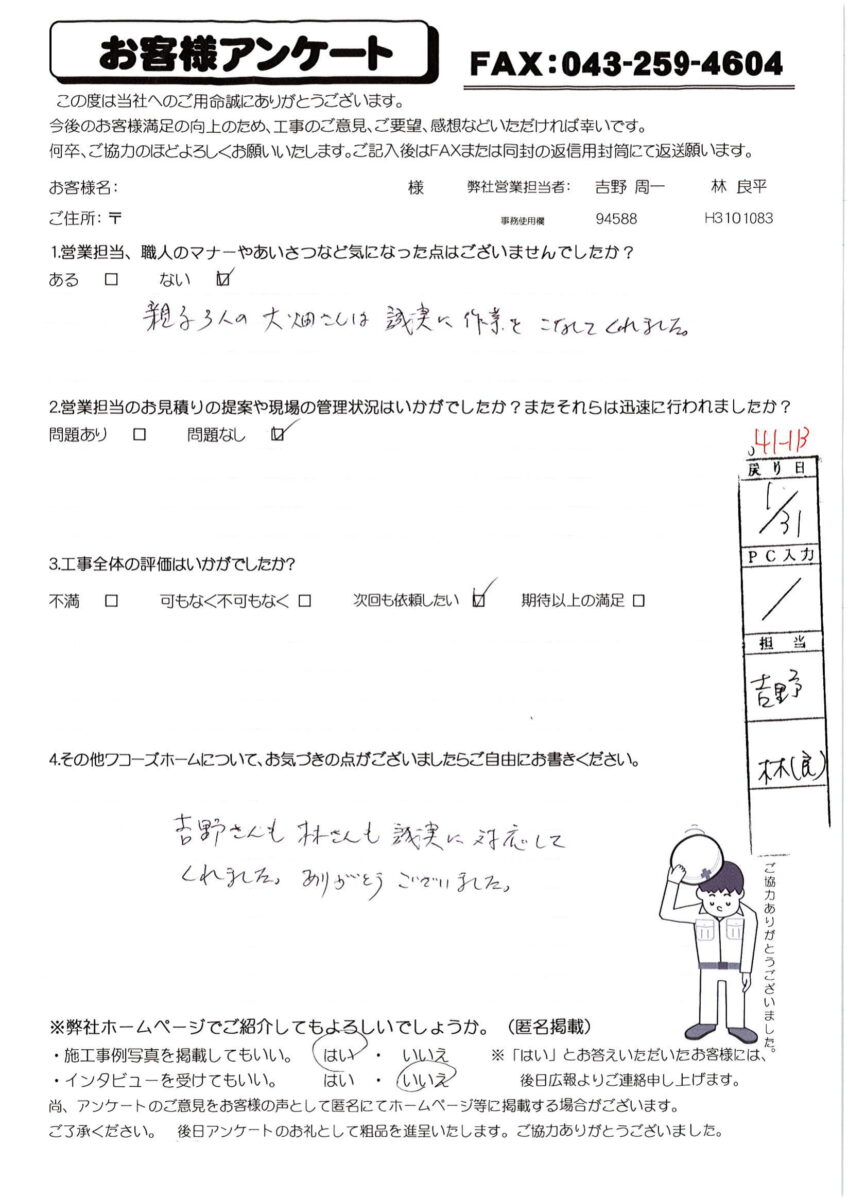 お客様アンケート
FAX:043-259-4604
この度は当社へのご用命誠にありがとうございます。
今後のお客様満足の向上のため、工事のご意見、ご要望、感想などいただければ幸いです。
何卒、ご協力のほどよろしくお願いいたします。ご記入後はFAXまたは同封の返信用封筒にて返送願います。
お客様名: 様 弊社営業担当者: 吉野 周一 林 良平
ご住所:〒 事務使用欄 94588 H3101083
1.営業担当、職人のマナーやあいさつなど気になった点はございませんでしたか?
ある □ ない ☑
親子3人の大畑さんは誠実に作業をこなしてくれました。
2.営業担当のお見積りの提案や現場の管理状況はいかがでしたか?またそれらは迅速に行われましたか?
問題あり □ 問題なし ☑
41-1B
戻り日
1/31
PC入力
/
担当
吉野
林(良)
3.工事全体の評価はいかがでしたか?
不満 □ 可もなく不可もなく □ 次回も依頼したい ☑ 期待以上の満足 □
4.その他ワコーズホームについて、お気づきの点がございましたらご自由にお書きください。
吉野さんも林さんも誠実に対応して
くれました。ありがとうございました。
ご協力ありがとうございました。
※弊社ホームページでご紹介してもよろしいでしょうか。(匿名掲載)
・施工事例写真を掲載してもいい。 はい ・ いいえ ※「はい」とお答えいただいたお客様には、
・インタビューを受けてもいい。 はい ・ いいえ 後日広報よりご連絡申し上げます。
尚、アンケートのご意見をお客様の声として匿名にてホームページ等に掲載する場合がございます。
ご了承ください。 後日アンケートのお礼として粗品を進呈いたします。ご協力ありがとうございました。